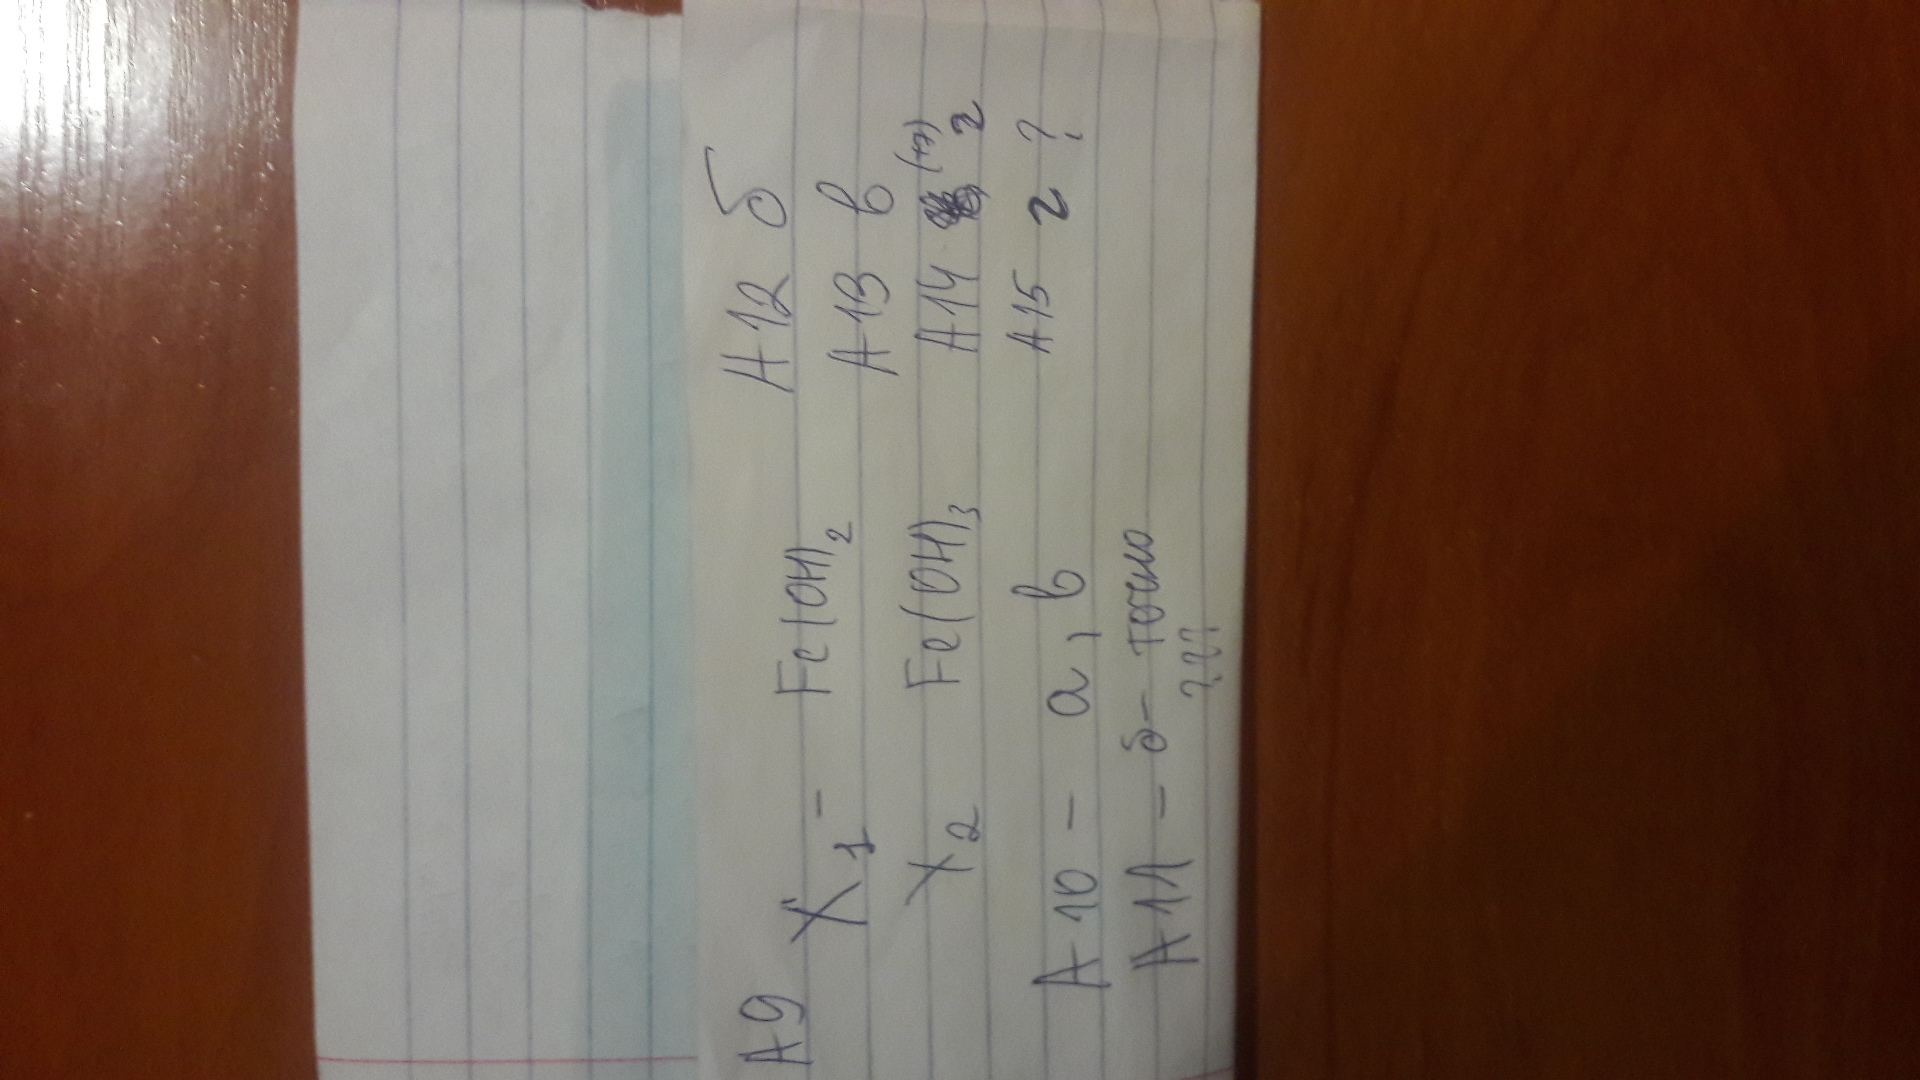 А9 X1 - Fe(OH)2
X2 Fe(OH)3
А10 - а, в
А11 - б - точно
???
А12 б
А13 в
А14 (+3) г
А15 г ?